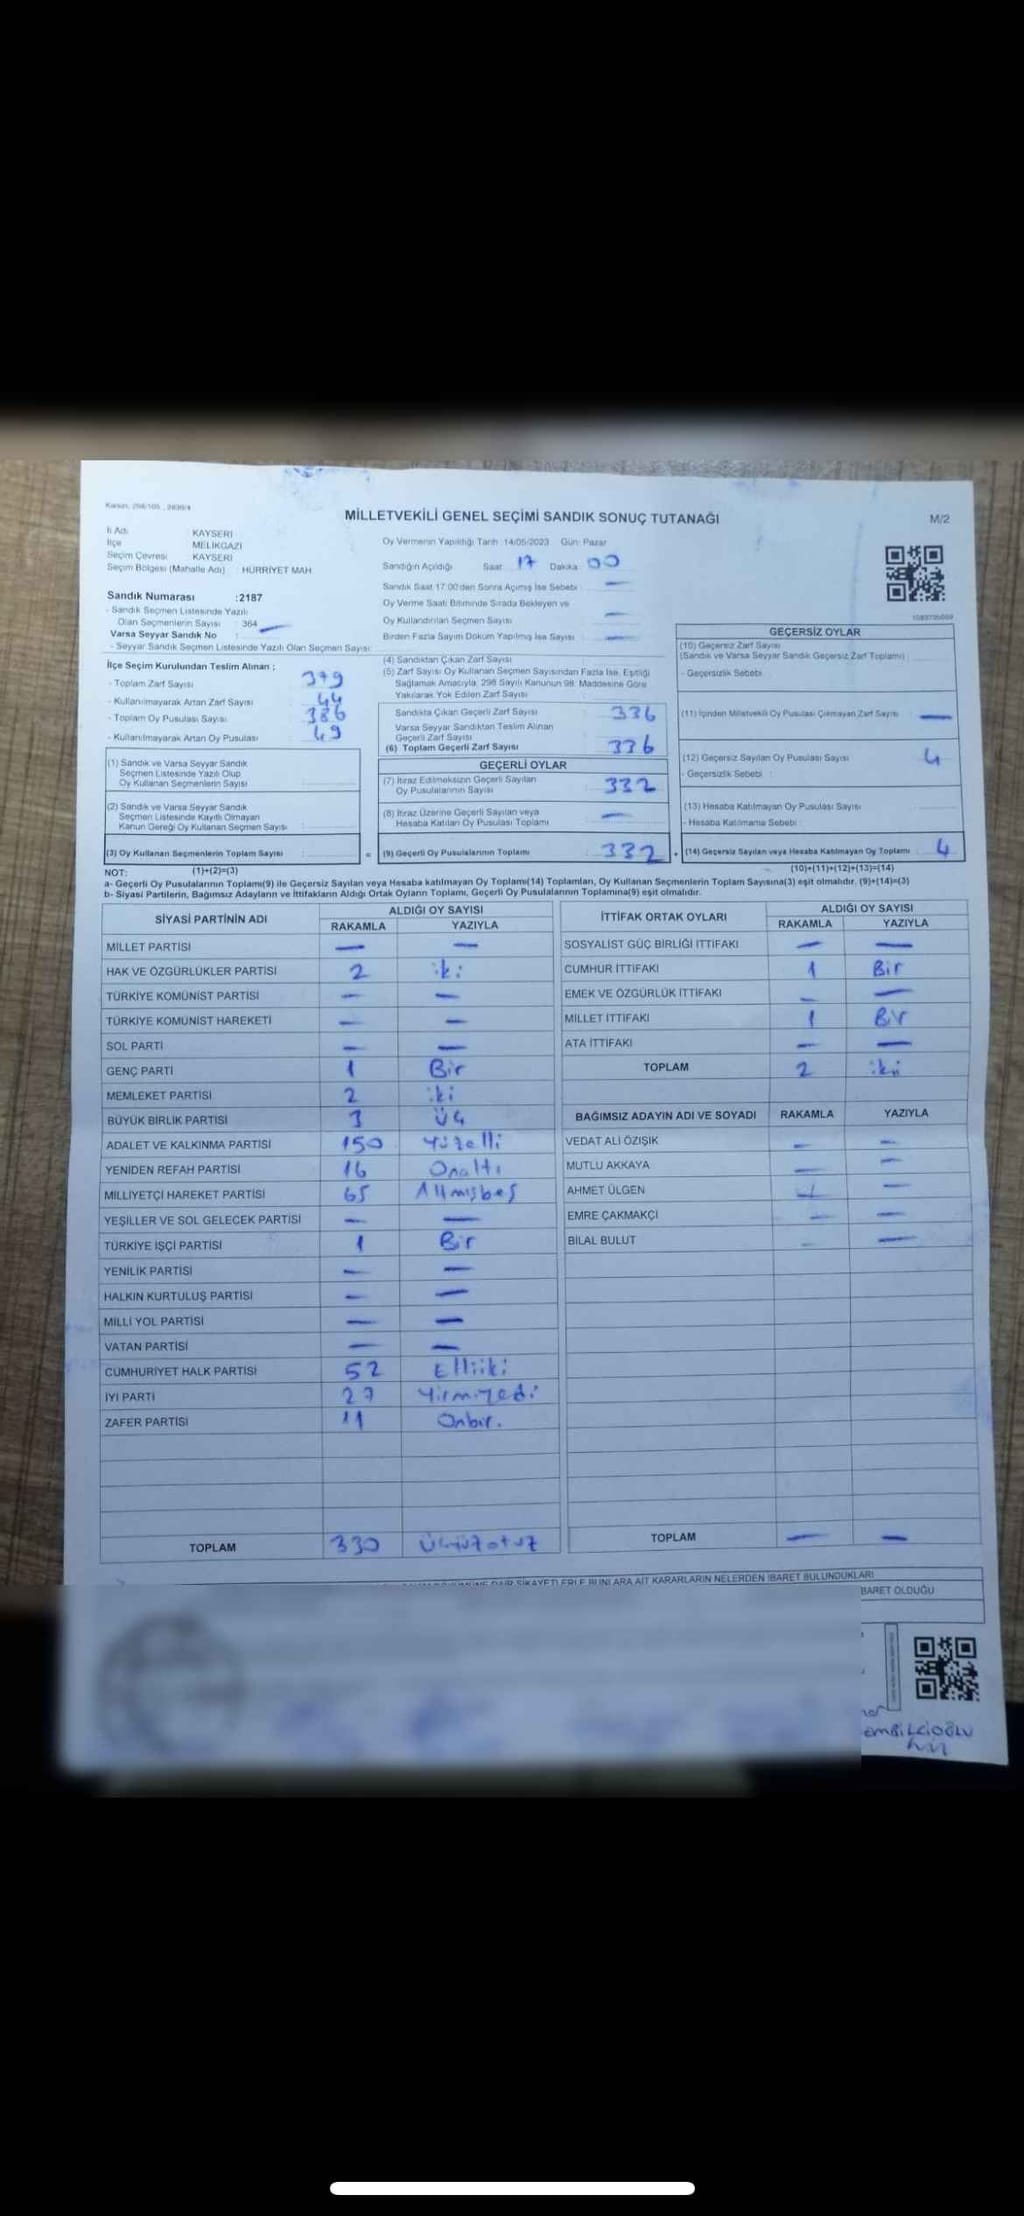 Kanun: 298/105 , 2839/4
MİLLETVEKİLİ GENEL SEÇİMİ SANDIK SONUÇ TUTANAĞI
M/2
İl Adı : KAYSERİ
İlçe : MELİKGAZİ
Seçim Çevresi : KAYSERİ
Seçim Bölgesi (Mahalle Adı) : HÜRRİYET MAH
Sandık Numarası :2187
- Sandık Seçmen Listesinde Yazılı
Olan Seçmenlerin Sayısı : 364
Varsa Seyyar Sandık No :
- Seyyar Sandık Seçmen Listesinde Yazılı Olan Seçmen Sayısı:
Oy Vermenin Yapıldığı Tarih :14/05/2023 Gün: Pazar
Sandığın Açıldığı Saat 17 Dakika 00
Sandık Saat 17:00'den Sonra Açılmış İse Sebebi : —
Oy Verme Saati Bitiminde Sırada Bekleyen ve
Oy Kullandırılan Seçmen Sayısı —
Birden Fazla Sayım Döküm Yapılmış İse Sayısı : —
İlçe Seçim Kurulundan Teslim Alınan ;
- Toplam Zarf Sayısı : 379
- Kullanılmayarak Artan Zarf Sayısı : 44
- Toplam Oy Pusulası Sayısı : 386
- Kullanılmayarak Artan Oy Pusulası : 49
(1) Sandık ve Varsa Seyyar Sandık
Seçmen Listesinde Yazılı Olup
Oy Kullanan Seçmenlerin Sayısı
(2) Sandık ve Varsa Seyyar Sandık
Seçmen Listesinde Kayıtlı Olmayan
Kanun Gereği Oy Kullanan Seçmen Sayısı
(3) Oy Kullanan Seçmenlerin Toplam Sayısı
(1)+(2)=(3)
(4) Sandıktan Çıkan Zarf Sayısı
(5) Zarf Sayısı Oy Kullanan Seçmen Sayısından Fazla İse, Eşitliği
Sağlamak Amacıyla, 298 Sayılı Kanunun 98. Maddesine Göre
Yakılarak Yok Edilen Zarf Sayısı
Sandıkta Çıkan Geçerli Zarf Sayısı 336
Varsa Seyyar Sandıktan Teslim Alınan
Geçerli Zarf Sayısı
(6) Toplam Geçerli Zarf Sayısı 336
GEÇERLİ OYLAR
(7) İtiraz Edilmeksizin Geçerli Sayılan
Oy Pusulalarının Sayısı 332
(8) İtiraz Üzerine Geçerli Sayılan veya
Hesaba Katılan Oy Pusulası Toplamı —
= (9) Geçerli Oy Pusulalarının Toplamı 332 +
GEÇERSİZ OYLAR
(10) Geçersiz Zarf Sayısı
(Sandık ve Varsa Seyyar Sandık Geçersiz Zarf Toplamı)
- Geçersizlik Sebebi :
(11) İçinden Milletvekili Oy Pusulası Çıkmayan Zarf Sayısı —
(12) Geçersiz Sayılan Oy Pusulası Sayısı 4
- Geçersizlik Sebebi :
(13) Hesaba Katılmayan Oy Pusulası Sayısı
- Hesaba Katılmama Sebebi :
(14) Geçersiz Sayılan veya Hesaba Katılmayan Oy Toplamı 4
(10)+(11)+(12)+(13)=(14)
NOT:
a- Geçerli Oy Pusulalarının Toplamı(9) ile Geçersiz Sayılan veya Hesaba katılmayan Oy Toplamı(14) Toplamları, Oy Kullanan Seçmenlerin Toplam Sayısına(3) eşit olmalıdır. (9)+(14)=(3)
b- Siyasi Partilerin, Bağımsız Adayların ve İttifakların Aldığı Ortak Oyların Toplamı, Geçerli Oy Pusulalarının Toplamına(9) eşit olmalıdır.
SİYASİ PARTİNİN ADI ALDIĞI OY SAYISI
RAKAMLA YAZIYLA
MİLLET PARTİSİ — —
HAK VE ÖZGÜRLÜKLER PARTİSİ 2 iki
TÜRKİYE KOMÜNİST PARTİSİ — —
TÜRKİYE KOMÜNİST HAREKETİ — —
SOL PARTİ — —
GENÇ PARTİ 1 Bir
MEMLEKET PARTİSİ 2 iki
BÜYÜK BİRLİK PARTİSİ 3 Üç
ADALET VE KALKINMA PARTİSİ 150 Yüzelli
YENİDEN REFAH PARTİSİ 16 Onaltı
MİLLİYETÇİ HAREKET PARTİSİ 65 Altmışbeş
YEŞİLLER VE SOL GELECEK PARTİSİ — —
TÜRKİYE İŞÇİ PARTİSİ 1 Bir
YENİLİK PARTİSİ — —
HALKIN KURTULUŞ PARTİSİ — —
MİLLİ YOL PARTİSİ — —
VATAN PARTİSİ — —
CUMHURİYET HALK PARTİSİ 52 Elliiki
İYİ PARTİ 27 Yirmiyedi
ZAFER PARTİSİ 11 Onbir.
TOPLAM 330 Üçyüzotuz
İTTİFAK ORTAK OYLARI ALDIĞI OY SAYISI
RAKAMLA YAZIYLA
SOSYALİST GÜÇ BİRLİĞİ İTTİFAKI — —
CUMHUR İTTİFAKI 1 Bir
EMEK VE ÖZGÜRLÜK İTTİFAKI — —
MİLLET İTTİFAKI 1 Bir
ATA İTTİFAKI — —
TOPLAM 2 iki
BAĞIMSIZ ADAYIN ADI VE SOYADI RAKAMLA YAZIYLA
VEDAT ALİ ÖZIŞIK — —
MUTLU AKKAYA — —
AHMET ÜLGEN — —
EMRE ÇAKMAKÇI — —
BİLAL BULUT — —
TOPLAM — —
DAİR ŞİKAYETLERLE BUNLARA AİT KARARLARIN NELERDEN İBARET BULUNDUKLARI
BARET OLDUĞU